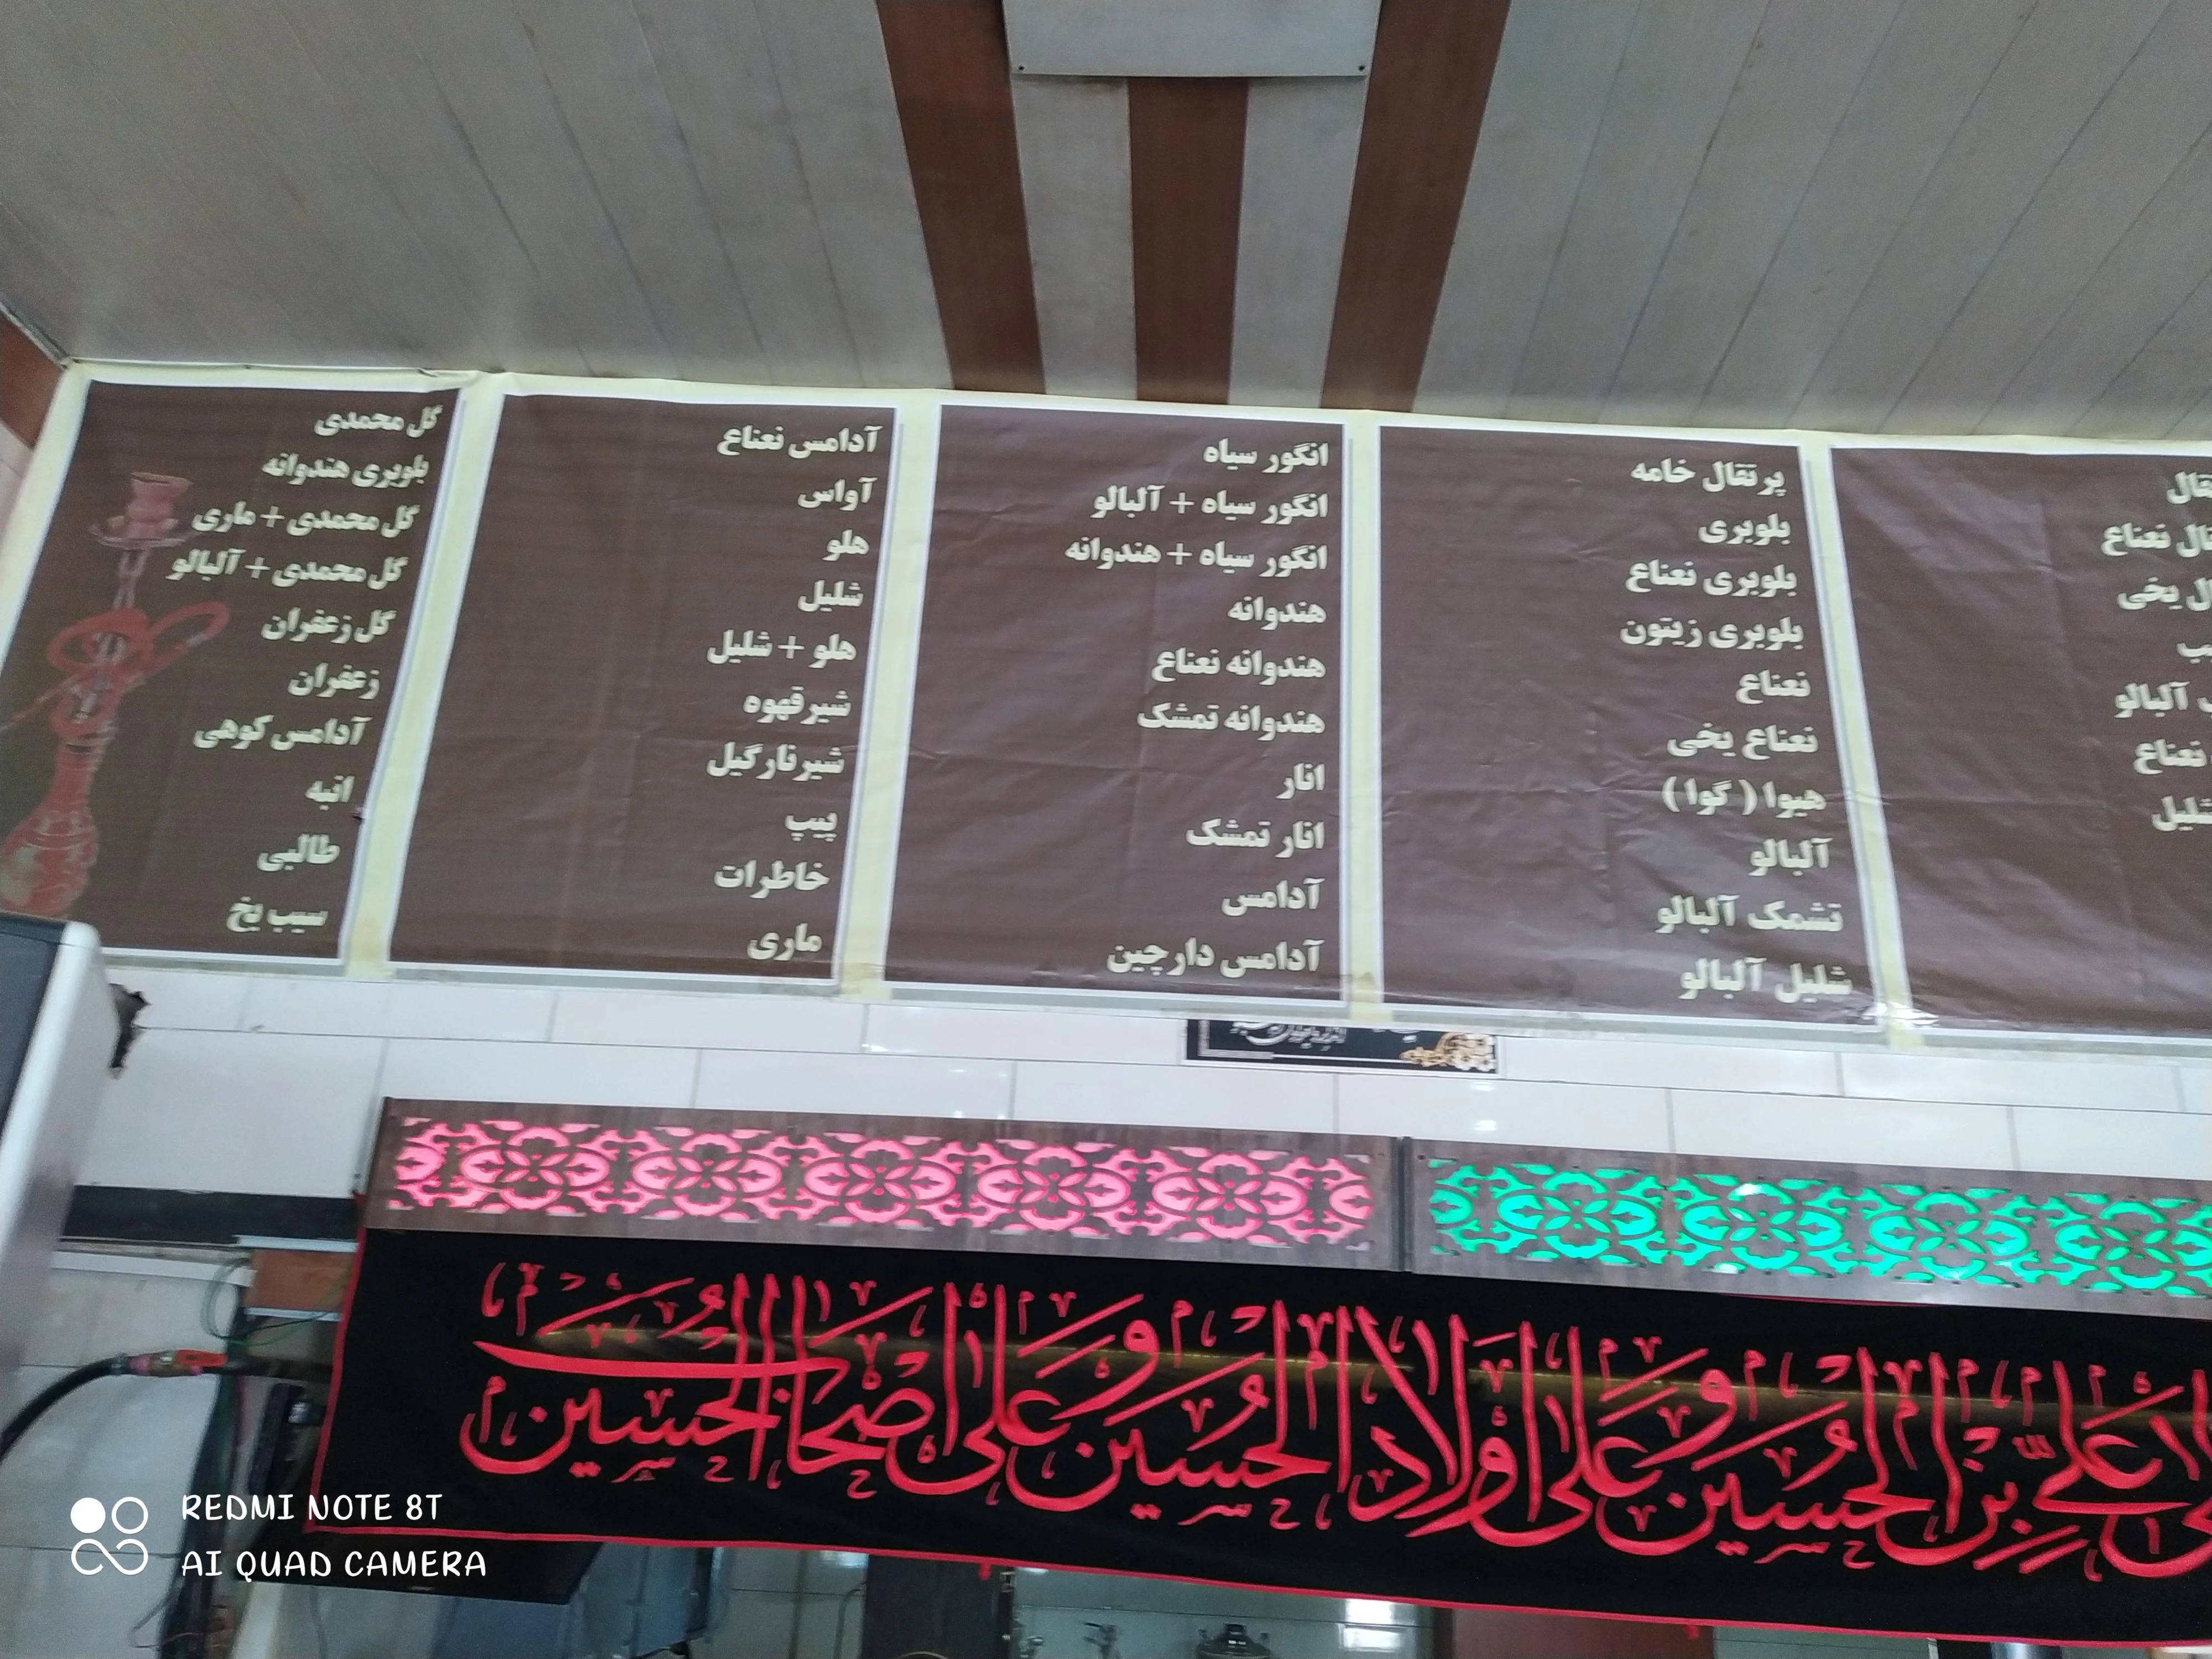 تعناع
آلبالو
پرتقال خامه
بلوبری
بلوبری نعناع
بلوبری زیتون
نعناع
نعناع یخی
هیوا ( گوا )
آلبالو
تشمک آلبالو
شلیل آلبالو
انگور سیاه
انگور سیاه + آلبالو
انگور سیاه + هندوانه
هندوانه
هندوانه نعناع
هندوانه تمشک
انار
انار تمشک
آدامس
آدامس دارچین
آدامس نعناع
آواس
هلو
شلیل
هلو + شلیل
شیرقهوه
شیرنارگیل
پیپ
خاطرات
ماری
گل محمدی
بلوبری هندوانه
گل محمدی + ماری
گل محمدی + آلبالو
گل زعفران
زعفران
آدامس کوهی
انبه
طالبی
سیب یخ
علی بن الحسین و علی اولاد الحسین و علی اصحاب الحسین
REDMI NOTE 8T
AI QUAD CAMERA